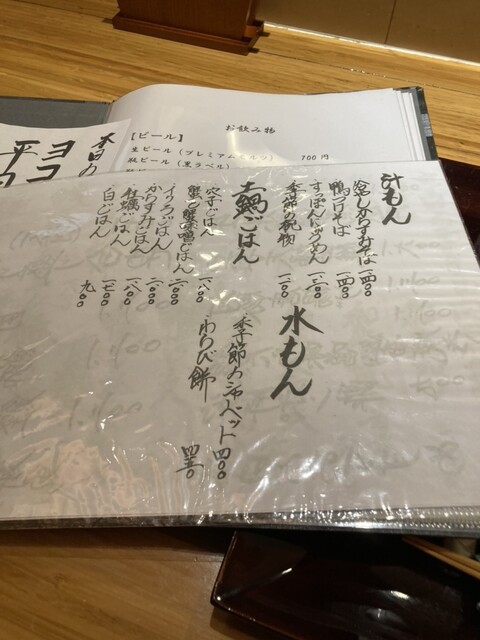 お飲み物
【ビール】
生ビール（プレミアムモルツ） 700円
瓶ビール（黒ラベル）
本日の
汁もん
冷しからすみそば 一四〇〇
鴨つけそば 一四〇〇
すっぽんにゅうめん 一三〇〇
季節の椀物 一二〇〇
土鍋ごはん
穴子ごはん 一八〇〇
蟹と蟹味噌ごはん 二〇〇〇
いくらごはん 二〇〇〇
からすみごはん 二〇〇〇
牡蠣ごはん 一八〇〇
白ごはん 九〇〇
水もん
季節のシャーベット 四〇〇
わらび餅 四五〇